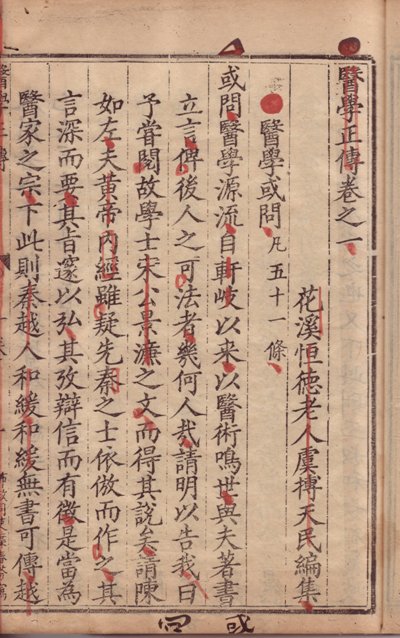 醫學正傳卷之一
花溪恒德老人虞摶天民編集
醫學或問凡五十一條
或問醫學源流自軒岐以来以醫術鳴世與夫著書
立言俾後人之可法者幾何人哉請明以告我曰
予嘗閱故學士宋公景濂之文而得其說矣請陳
如左夫黃帝内經雖疑先秦之士依倣而作之其
言深而要其旨邃以弘其攷辯信而有徵是當為
醫家之宗下此則秦越人和緩和緩無書可傳越